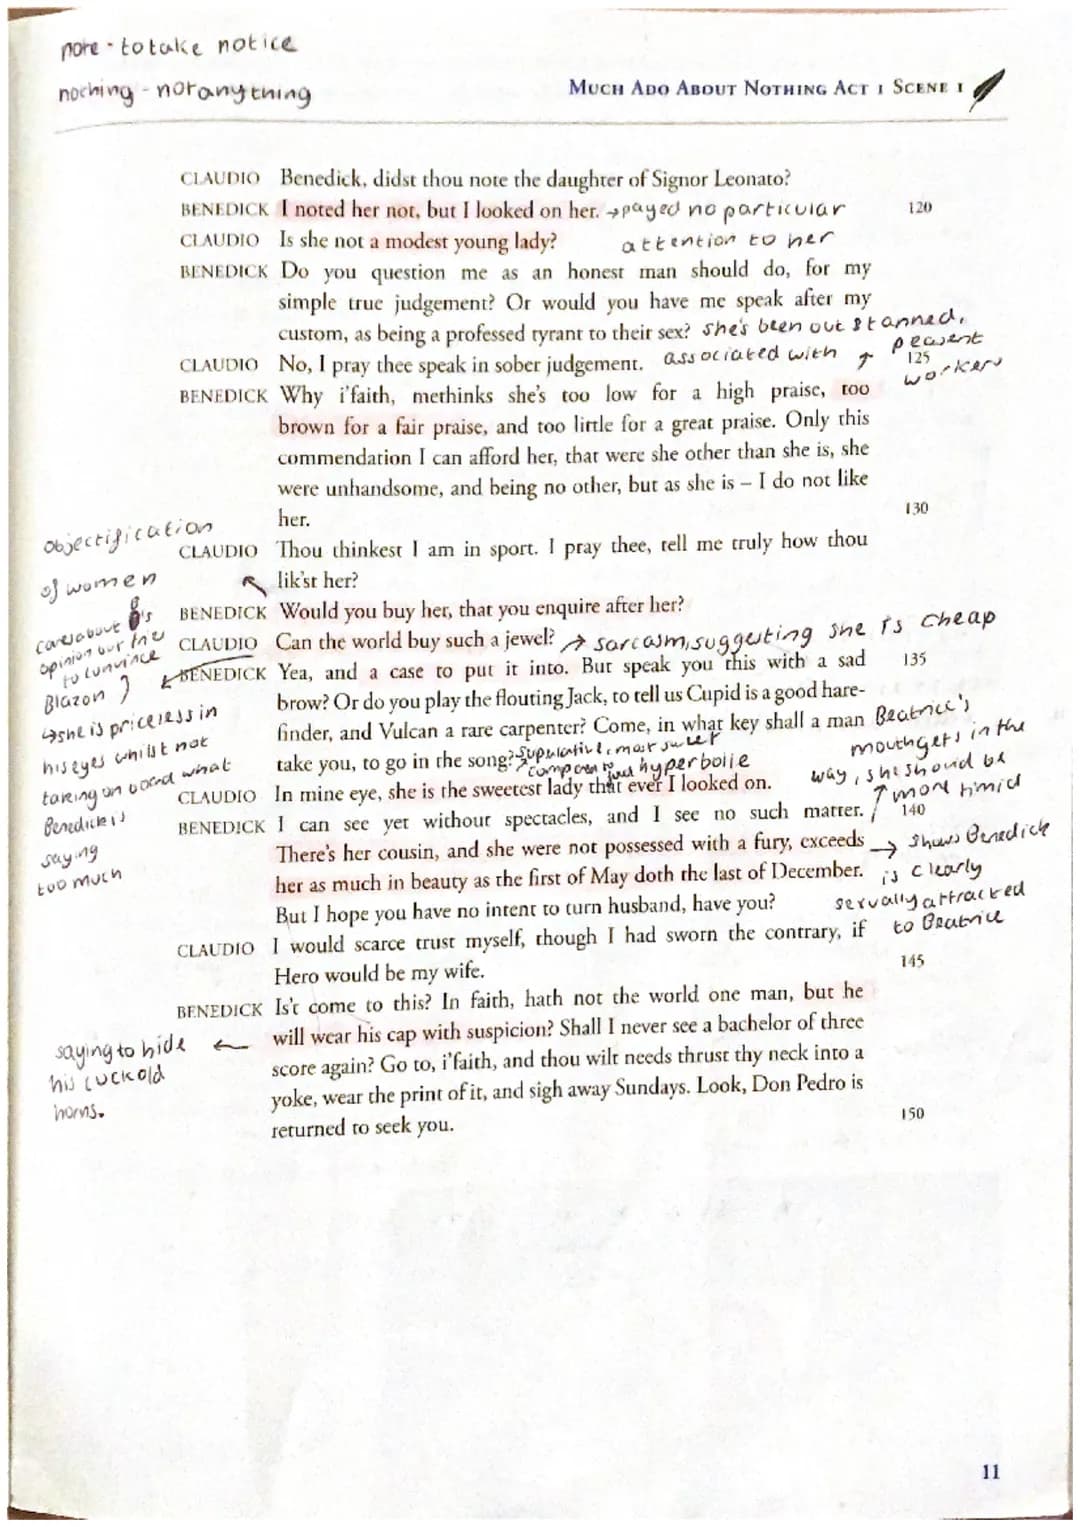 note - to take notice
nothing - not anything
MUCH ADO ABOUT NOTHING ACT 1 SCENE 1
CLAUDIO Benedick, didst thou note the daughter of Signor Leonato?
BENEDICK I noted her not, but I looked on her. → payed no particular 120
CLAUDIO Is she not a modest young lady? attention to her
BENEDICK Do you question me as an honest man should do, for my
simple true judgement? Or would you have me speak after my
custom, as being a professed tyrant to their sex? she's been out stanned,
CLAUDIO No, I pray thee speak in sober judgement. associated with ↑ peasent 125
workers
BENEDICK Why i'faith, methinks she's too low for a high praise, too
brown for a fair praise, and too little for a great praise. Only this
commendation I can afford her, that were she other than she is, she
were unhandsome, and being no other, but as she is – I do not like
her. 130
Objectification
of women
CLAUDIO Thou thinkest I am in sport. I pray thee, tell me truly how thou
lik'st her?
BENEDICK Would you buy her, that you enquire after her?
CLAUDIO Can the world buy such a jewel? → sarcasm, suggesting she is cheap
cares about B's
opinion but
to convince
Blazon
→ she is priceless in
his eyes whilst not
taking on board what
Benedick is
saying
too much
BENEDICK Yea, and a case to put it into. But speak you this with a sad 135
brow? Or do you play the flouting Jack, to tell us Cupid is a good hare-
finder, and Vulcan a rare carpenter? Come, in what key shall a man
take you, to go in the song? superlative, most sweet
hyperbolie
Beatrice's
mouth gets in the
way, she should be
↑ more timid
CLAUDIO In mine eye, she is the sweetest lady that ever I looked on.
BENEDICK I can see yet without spectacles, and I see no such matter. 140
There's her cousin, and she were not possessed with a fury, exceeds → shows Benedick
her as much in beauty as the first of May doth the last of December. is clearly
But I hope you have no intent to turn husband, have you? sexually attracted
to Beatrice
CLAUDIO I would scarce trust myself, though I had sworn the contrary, if
Hero would be my wife. 145
BENEDICK Is't come to this? In faith, hath not the world one man, but he
will wear his cap with suspicion? Shall I never see a bachelor of three
saying to hide ←
his cuckold
horns.
score again? Go to, i'faith, and thou wilt needs thrust thy neck into a
yoke, wear the print of it, and sigh away Sundays. Look, Don Pedro is
returned to seek you. 150
11